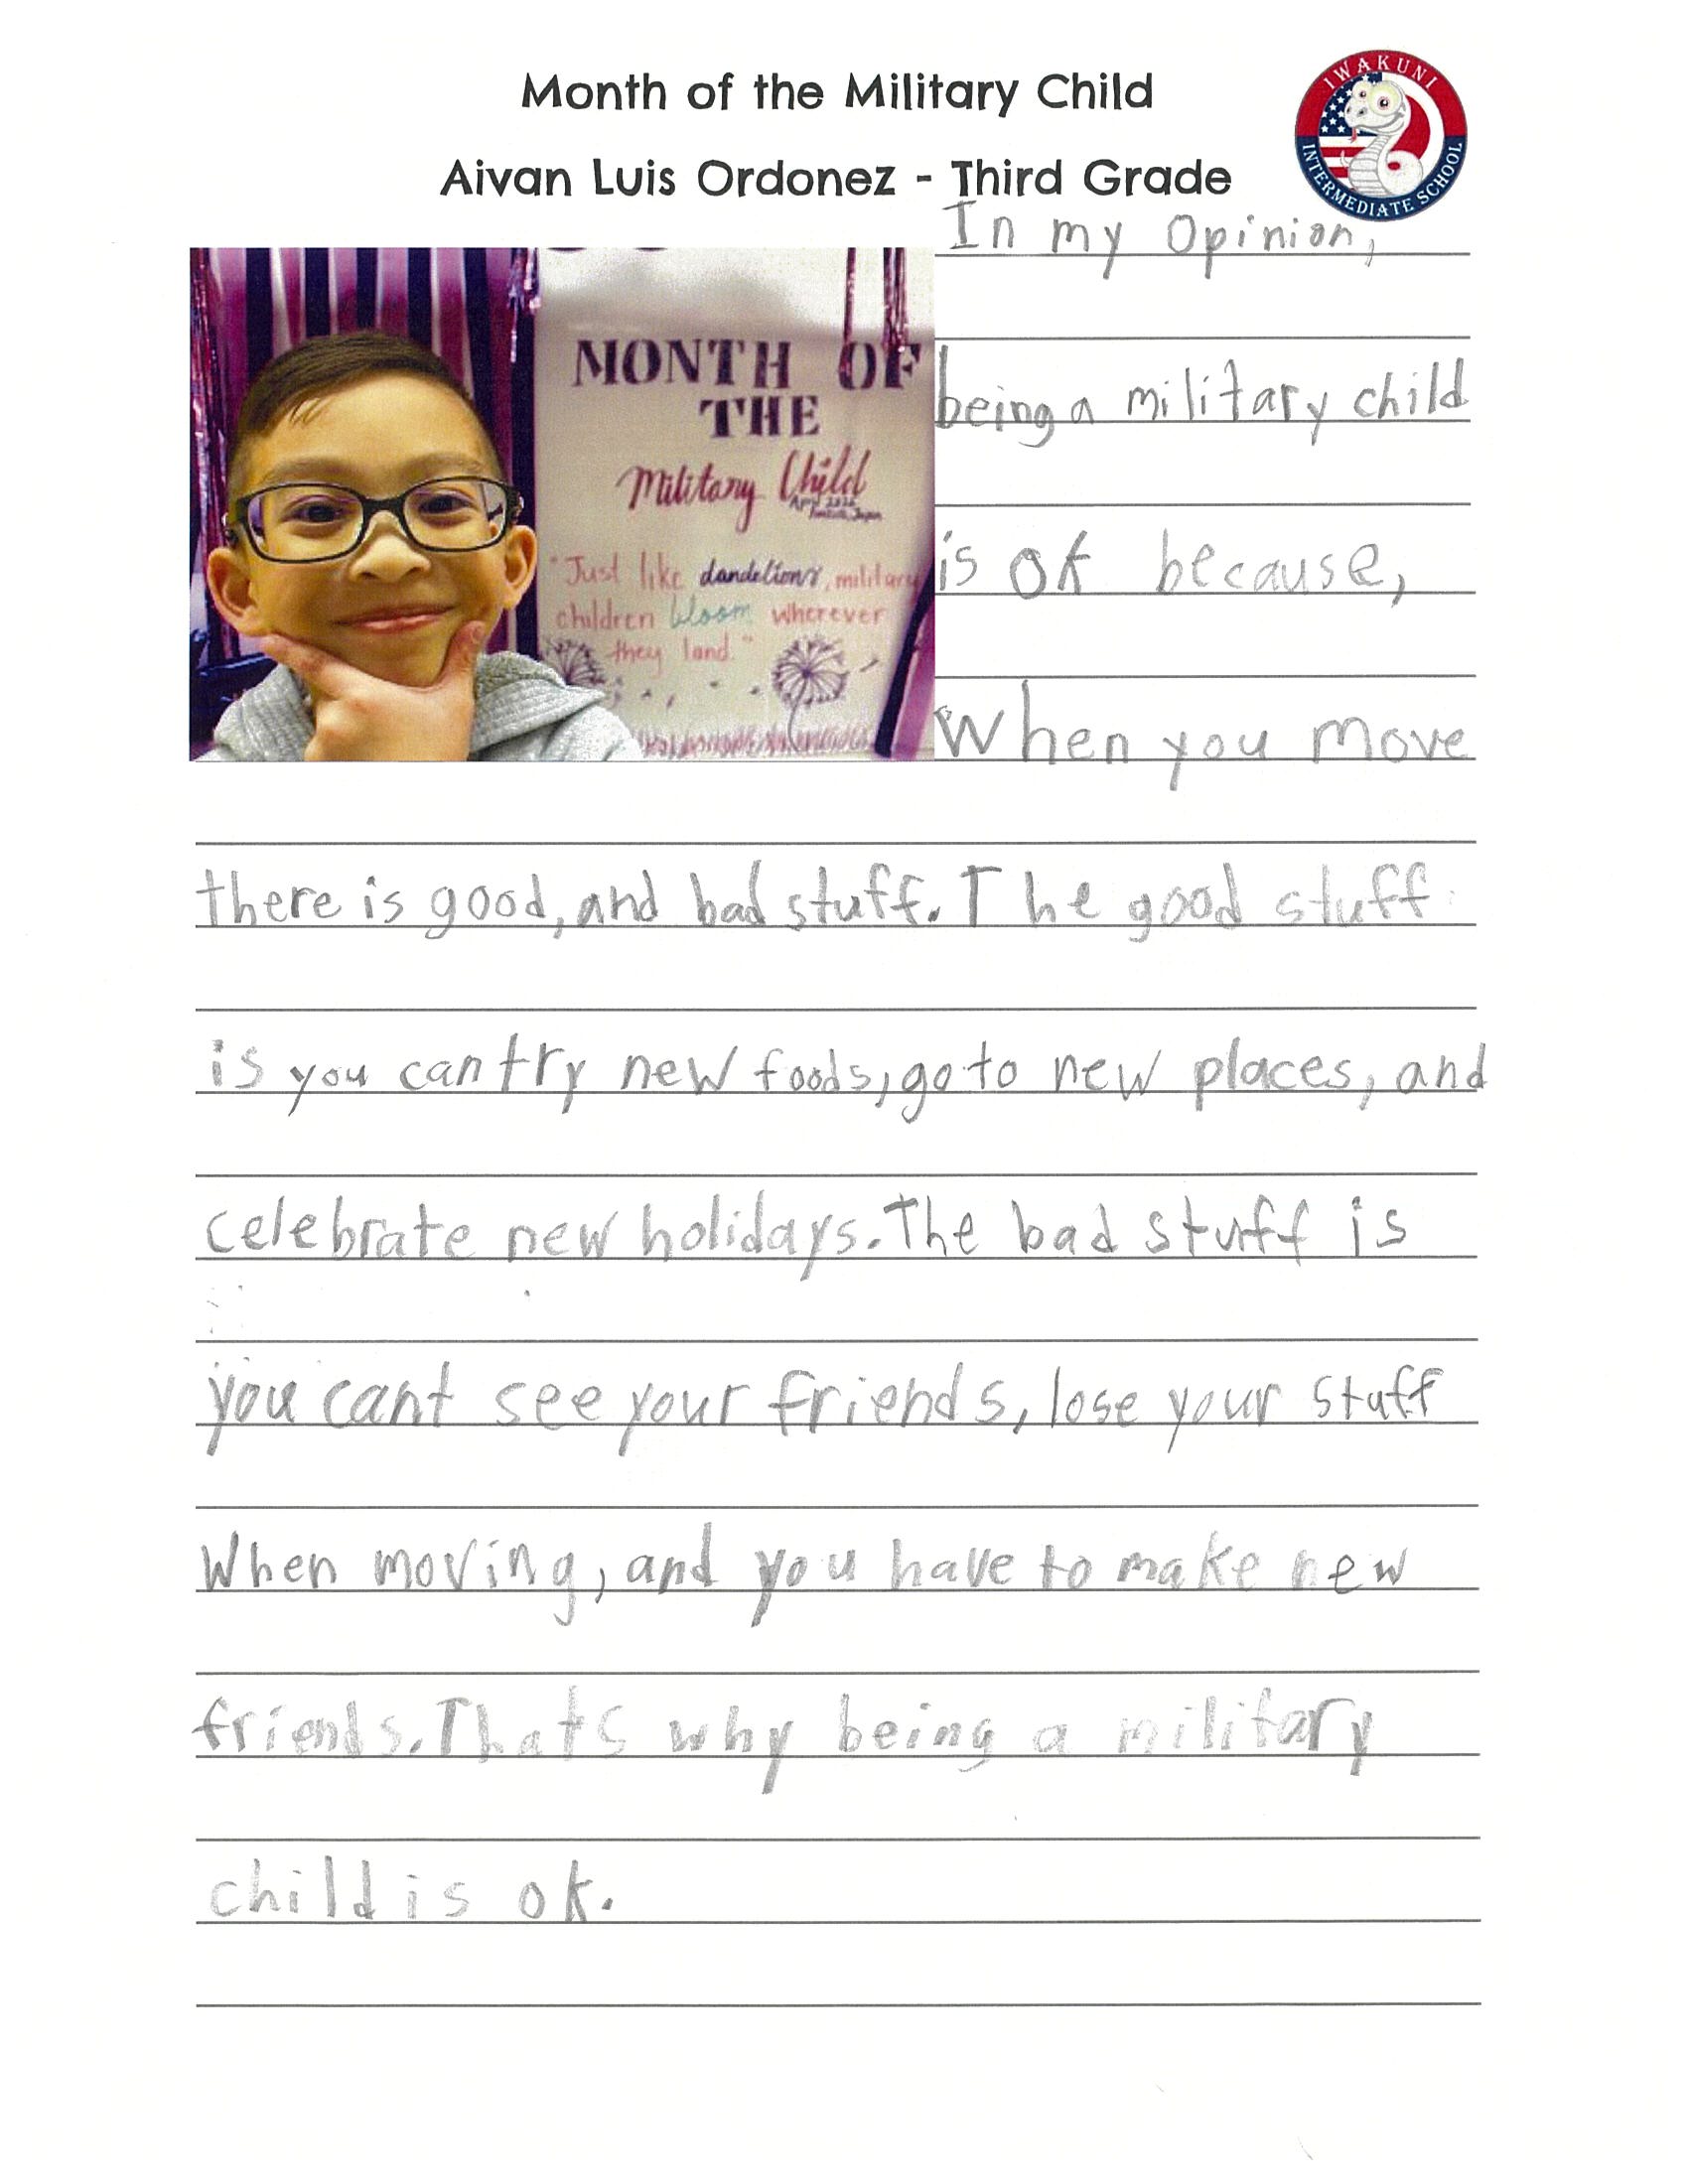 Month of the Military Child
Aivan Luis Ordonez - Third Grade
IWAKUNI
INTERMEDIATE SCHOOL
In my Opinion,
MONTH OF
THE
Military Child
April
"Just like dandelions, military
children bloom wherever
they land."
being a military child
is ok because,
When you move
there is good, and bad stuff. The good stuff
is you can try new foods, go to new places, and
celebrate new holidays. The bad stuff is
you cant see your friends, lose your stuff
When moving, and you have to make new
friends. Thats why being a military
child is ok.